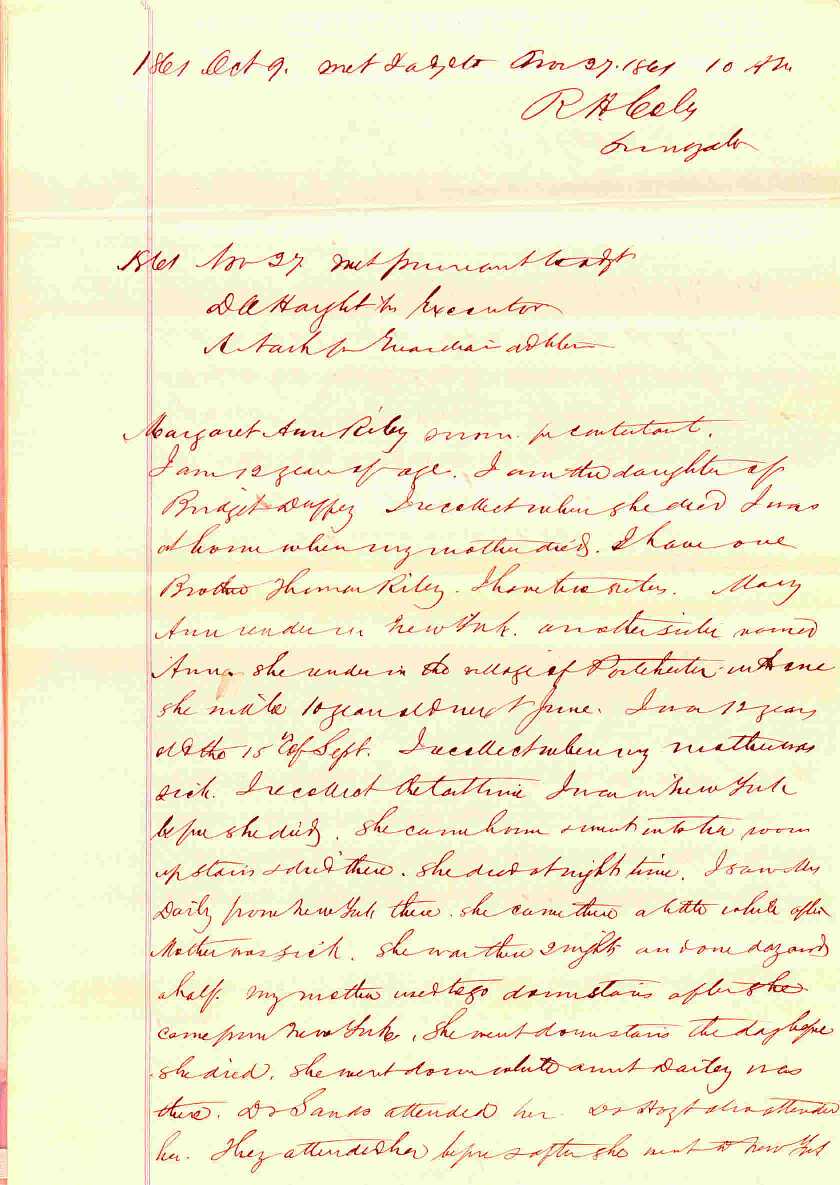 1861 Oct 9. met & adjd to Nov 27. 1861 10 AM
R H Coly
Surrogate
1861 Nov 27 met pursuant to adjt
D A Haight for Executor
A. Nash for Guardian ad litem
Margaret Ann Riley sworn. for contestant.
I am 12 years of age. I am the daughter of
Bridget Duffey I recollect when she died I was
at home when my mother died. I have one
Brother Thomas Riley. I have two sisters. Mary
Ann resides in New York. another sister named
Anna she resides in the village of Portchester
she will be 10 years old next June. I was 12 years
old the 15th of Sept. I recollect when my mother was
sick. I recollect the last time I was in New York
before she died. she came home & went into her room
up stairs & died there. she died at night time. I saw Mrs
Daily from New York there. she came there a little while after
Mother was sick. she was there 2 nights and one day and
a half. my mother used to go down stairs after she
came from New York. she went down stairs the day before
she died. she went down while aunt Dailey was
there. Dr Sands attended her. Dr Hoyt also attended
her. They attended her before & after she went to New York